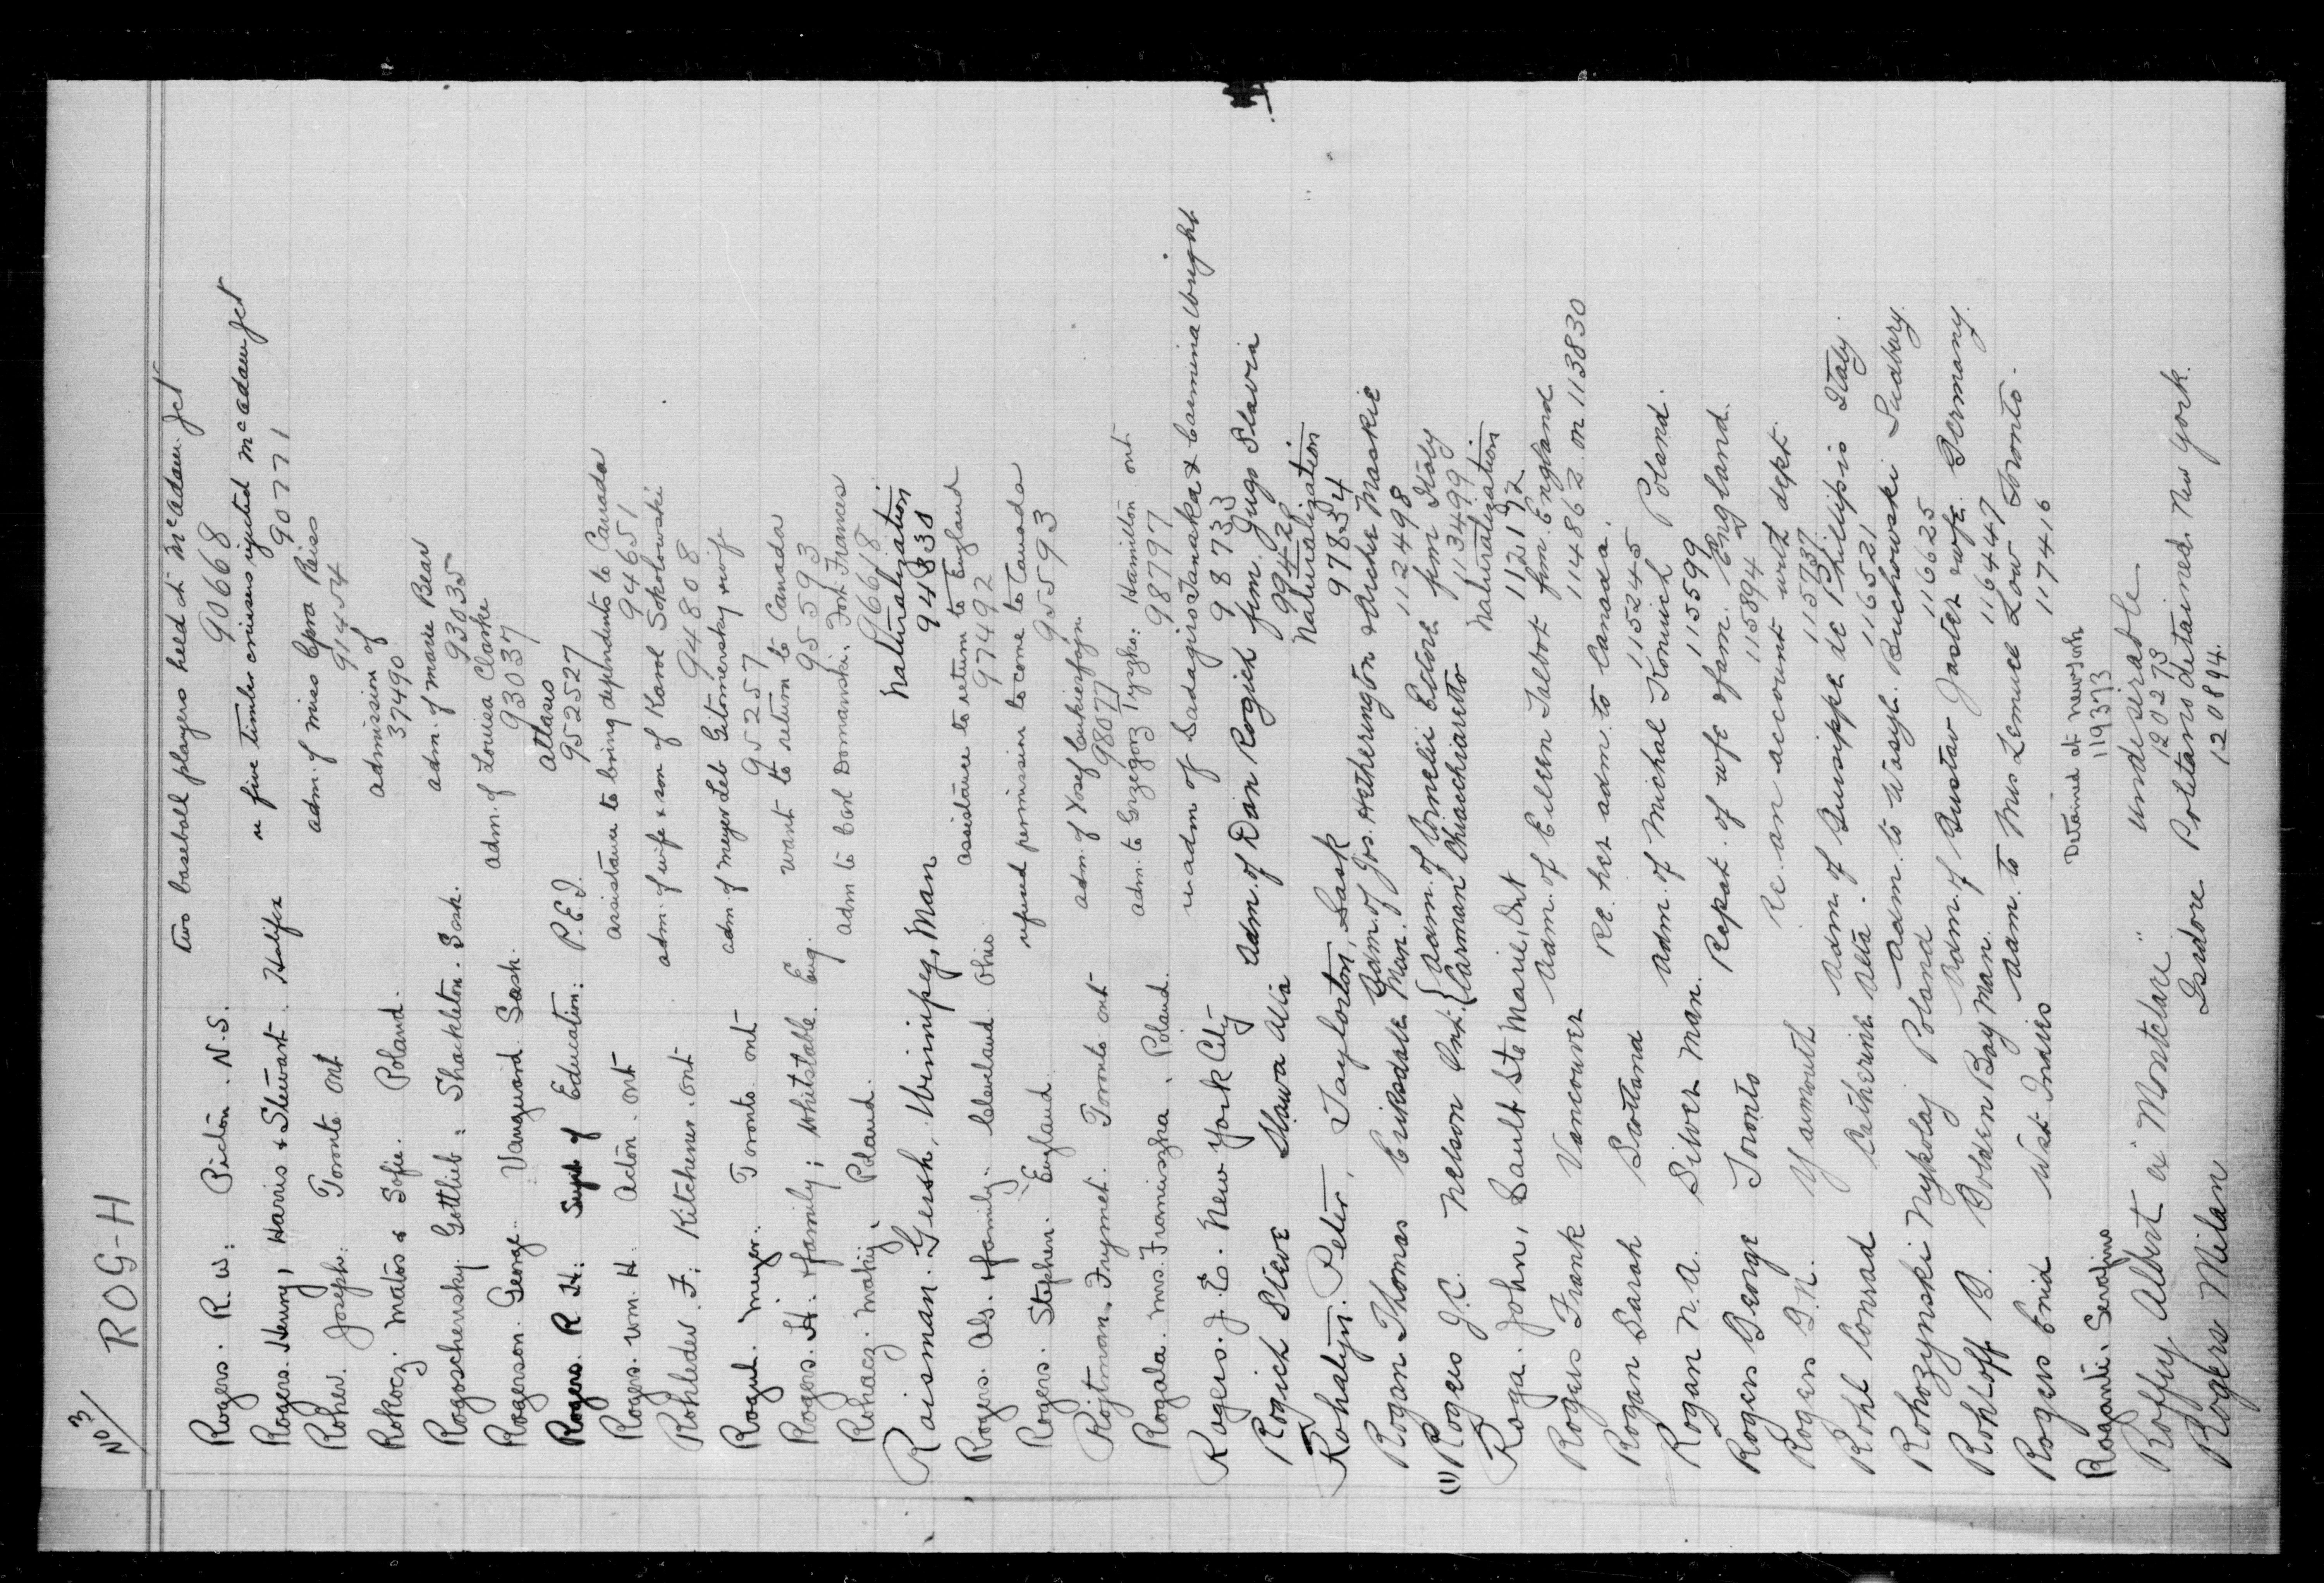 No 3/ ROG-H
two baseball players held at McAdam Jct
Rogers. R. W: Picton. N.S. 90668
Rogers. Henry, Harris & Stewart. Halifax re five timber cruisers rejected McAdam Jct
90771
Roher. Joseph: Toronto Ont adm. of miss Reiss
91454
Rokocz. Matos & Sofie. Poland. admission of
37490
Rogoschensky. Gottlieb: Shackleton. Sask. adm. of Marie Bear
93035
Rogerson. George. Vanguard Sask. adm. of Louisa Clarke
93037
Rogers. R. H: Supt of Education: P.E.I. atlases
952527
Rogers. Wm. H. Acton. Ont assistance to bring dependents to Canada
94651
Rohleder. F: Kitchener. Ont adm. of wife & son of Karol Sokolowski
94808
Rogul. Meyer. Toronto Ont adm. of Meyer Leb Gitomersky & wife
95257
Rogers. H. & family; Whitstable. Eng. want to return to Canada
95593
Rohacz. Maky. Poland. adm to Carl Domanski. Fort Frances
96618
Roisman. Gersh, Winnipeg, Man Naturalization
94838
Rogers. Al. & family. Cleveland Ohio. assistance to return to England
97492
Rogers. Stephen. England. refused permission to come to Canada
95593
Rojtman. Frymet. Toronto Ont adm. of Yosef
98077
Rogala. Mrs. Franciszka. Poland. adm. to Grzegorz Tyzzko: Hamilton Ont
98797
Rogers. J. E. New York City re adm of Sadagiro Tanaka & Carmina Wright
98733
Rogich Steve Shawa Alta Adm. of Dan Rogich fm. Jugo Slavia
99428
Rohalyn. Peter, Taylorton, Sask Naturalization
97854
Rogan Thomas Eriksdale Man. Adm. of Jos. Hetherington & Archie Maskie
112498
(1) Rogers J.C. Nelson Ont. { Adm. of Cornelii Ettore fm Italy
{ Carman Chiacchiaretto 113499
Roga. John, Sault Ste Marie, Ont Naturalization
112192
Rogers Frank Vancouver Adm. of Eileen Talbot fm. England
114862 on 113830
Rogan Sarah Scotland Re. her adm. to Canada.
115245
Rogan N. A. Silver Man. Adm. of Michal Konwich Poland.
115599
Rogers George Toronto Repat. of wife & fam. England.
115894
Rogers G. N. Yarmouth Re. an account with dept.
115737
Rohl Conrad Catherine Alta. Adm. of Guisippe de Phillipsio Italy.
116521
Rohozynski Nykolaj Poland Adm. to Wasyl. Buchowski Sudbury.
116625
Rohloff B. Golden Bay Man. Adm. of Gustav Jaster & wife. Germany.
116447
Rogers Enid West Indies Adm. to Mrs Lemuel Low Toronto.
117416
Roganti. Serafino Detained at New York
119373
Roffy Albert ex "Montclare" undesirable.
120273
Rogers Milan Isidore Politano detained New York.
120894.